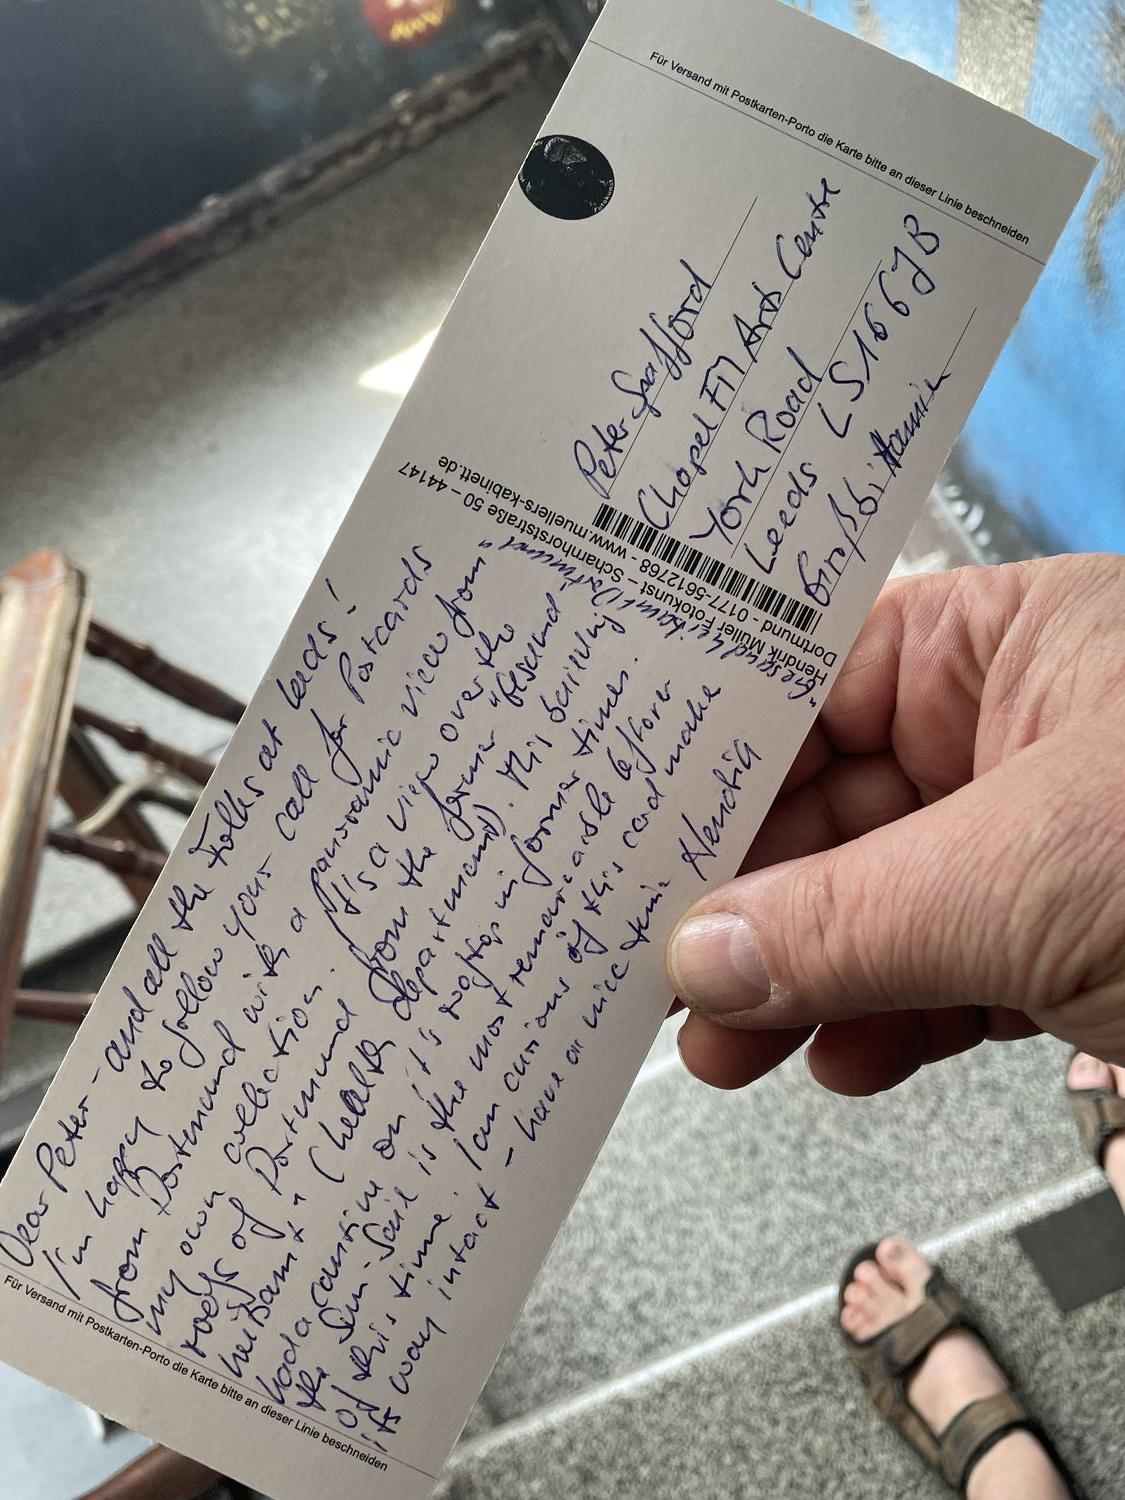 Dear Peter - and all the Folks at Leeds!
I'm happy to follow your call for Postcards
from Dortmund with a panoramic view from
my own collection. It's a view over the
roofs of Dortmund from the former "Gesund-
heitsamt" (health departement). This building
had a cantine on it's rooftop in former times.
the Sun-Sail is the most remarcable leftover
of this time. I am curious if this card make
its way intact - have a nice time Hendrik
"Gesundheitsamt Dortmund"
Hendrik Müller Fotokunst – Scharnhorststraße 50 – 44147
Dortmund - 0177-5612768 - www.muellers-kabinett.de
Peter Spafford
Chapel FM Arts Centre
York Road
Leeds LS16 6JB
Großbritannien
Für Versand mit Postkarten-Porto die Karte bitte an dieser Linie beschneiden
Für Versand mit Postkarten-Porto die Karte bitte an dieser Linie beschneiden